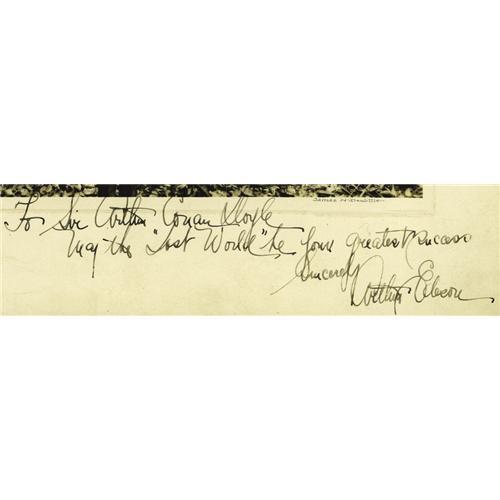 To Sir Arthur Conan Doyle
May the "Lost World" be your greatest success
Sincerely
Arthur Edeson